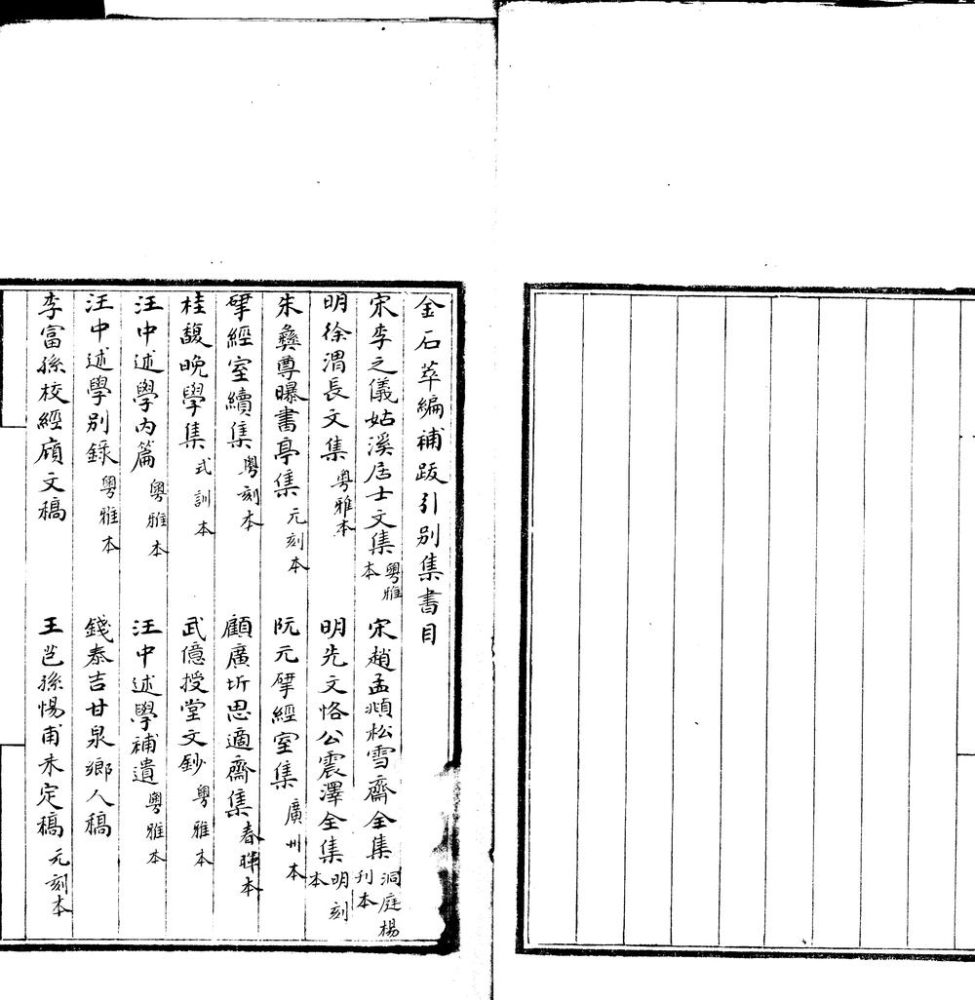 金石萃編補跋引別集書目
宋李之儀姑溪居士文集 粵雅本 宋趙孟頫松雪齋全集 洞庭楊刊本
明徐渭長文集 粵雅本 明先文恪公震澤全集 明刻本
朱彝尊曝書亭集 元刻本 阮元揅經室集 廣州本
揅經室續集 粵刻本 顧廣圻思適齋集 春暉本
桂馥晚學集 式訓本 武億授堂文鈔 粵雅本
汪中述學內篇 粵雅本 汪中述學補遺 粵雅本
汪中述學別錄 粵雅本 錢泰吉甘泉鄉人稿
李富孫校經廎文稿 王芑孫惕甫未定稿 元刻本